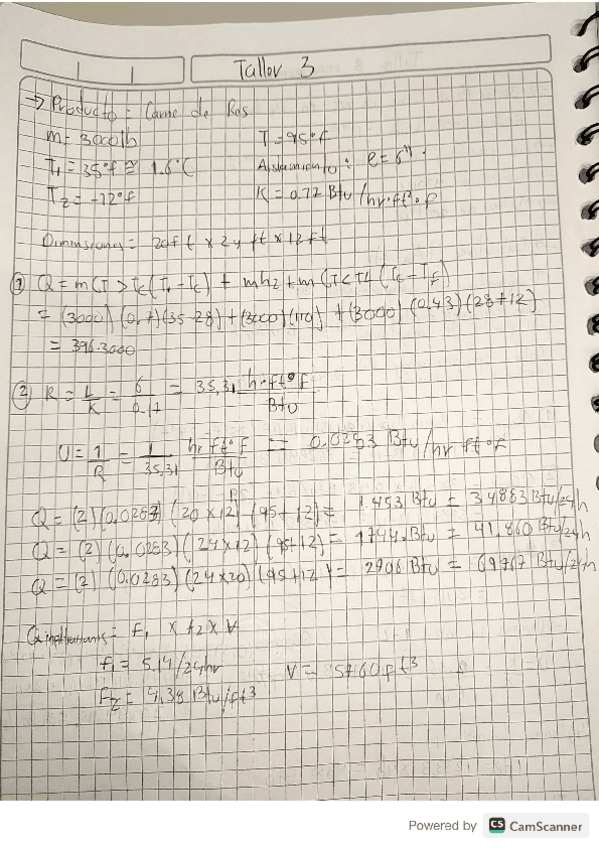 Taller 3
→ Producto = Carne de Res
m = 3000 lb T = 95°F
T₁ = 35°F ≅ 1.6°C Aislamiento: e = 6"
T₂ = -12°F K = 0.17 Btu/hr·ft²·°F
Dimensiones = 20ft x 24 ft x 12 ft
① Q = m CT > Tc (T₁ - Tc) + mhz + m CT < Tf (Tc - Tf)
= (3000)(0.7)(35-28) + (3000)(110) + (3000)(0.43)(28+12)
= 396.3000
② R = L/K = 6/0.17 = 35,31 h·ft²°F/Btu
U = 1/R = 1/35,31 hr ft²°F/Btu = 0.0283 Btu/hr ft²°F
Q = (2)(0.0283)(20x12)(95+12) = 1.453 Btu = 34883 Btu/24h
Q = (2)(0.0283)(24x12)(95+12) = 1744. Btu = 41.860 Btu/24h
Q = (2)(0.0283)(24x20)(95+12) = 2906 Btu = 69767 Btu/24h
Q = f₁ x f₂ x V
f₁ = 5.14/24hr V = 5760 ft³
F₂ = 4,38 Btu/ft³
Powered by CS CamScanner